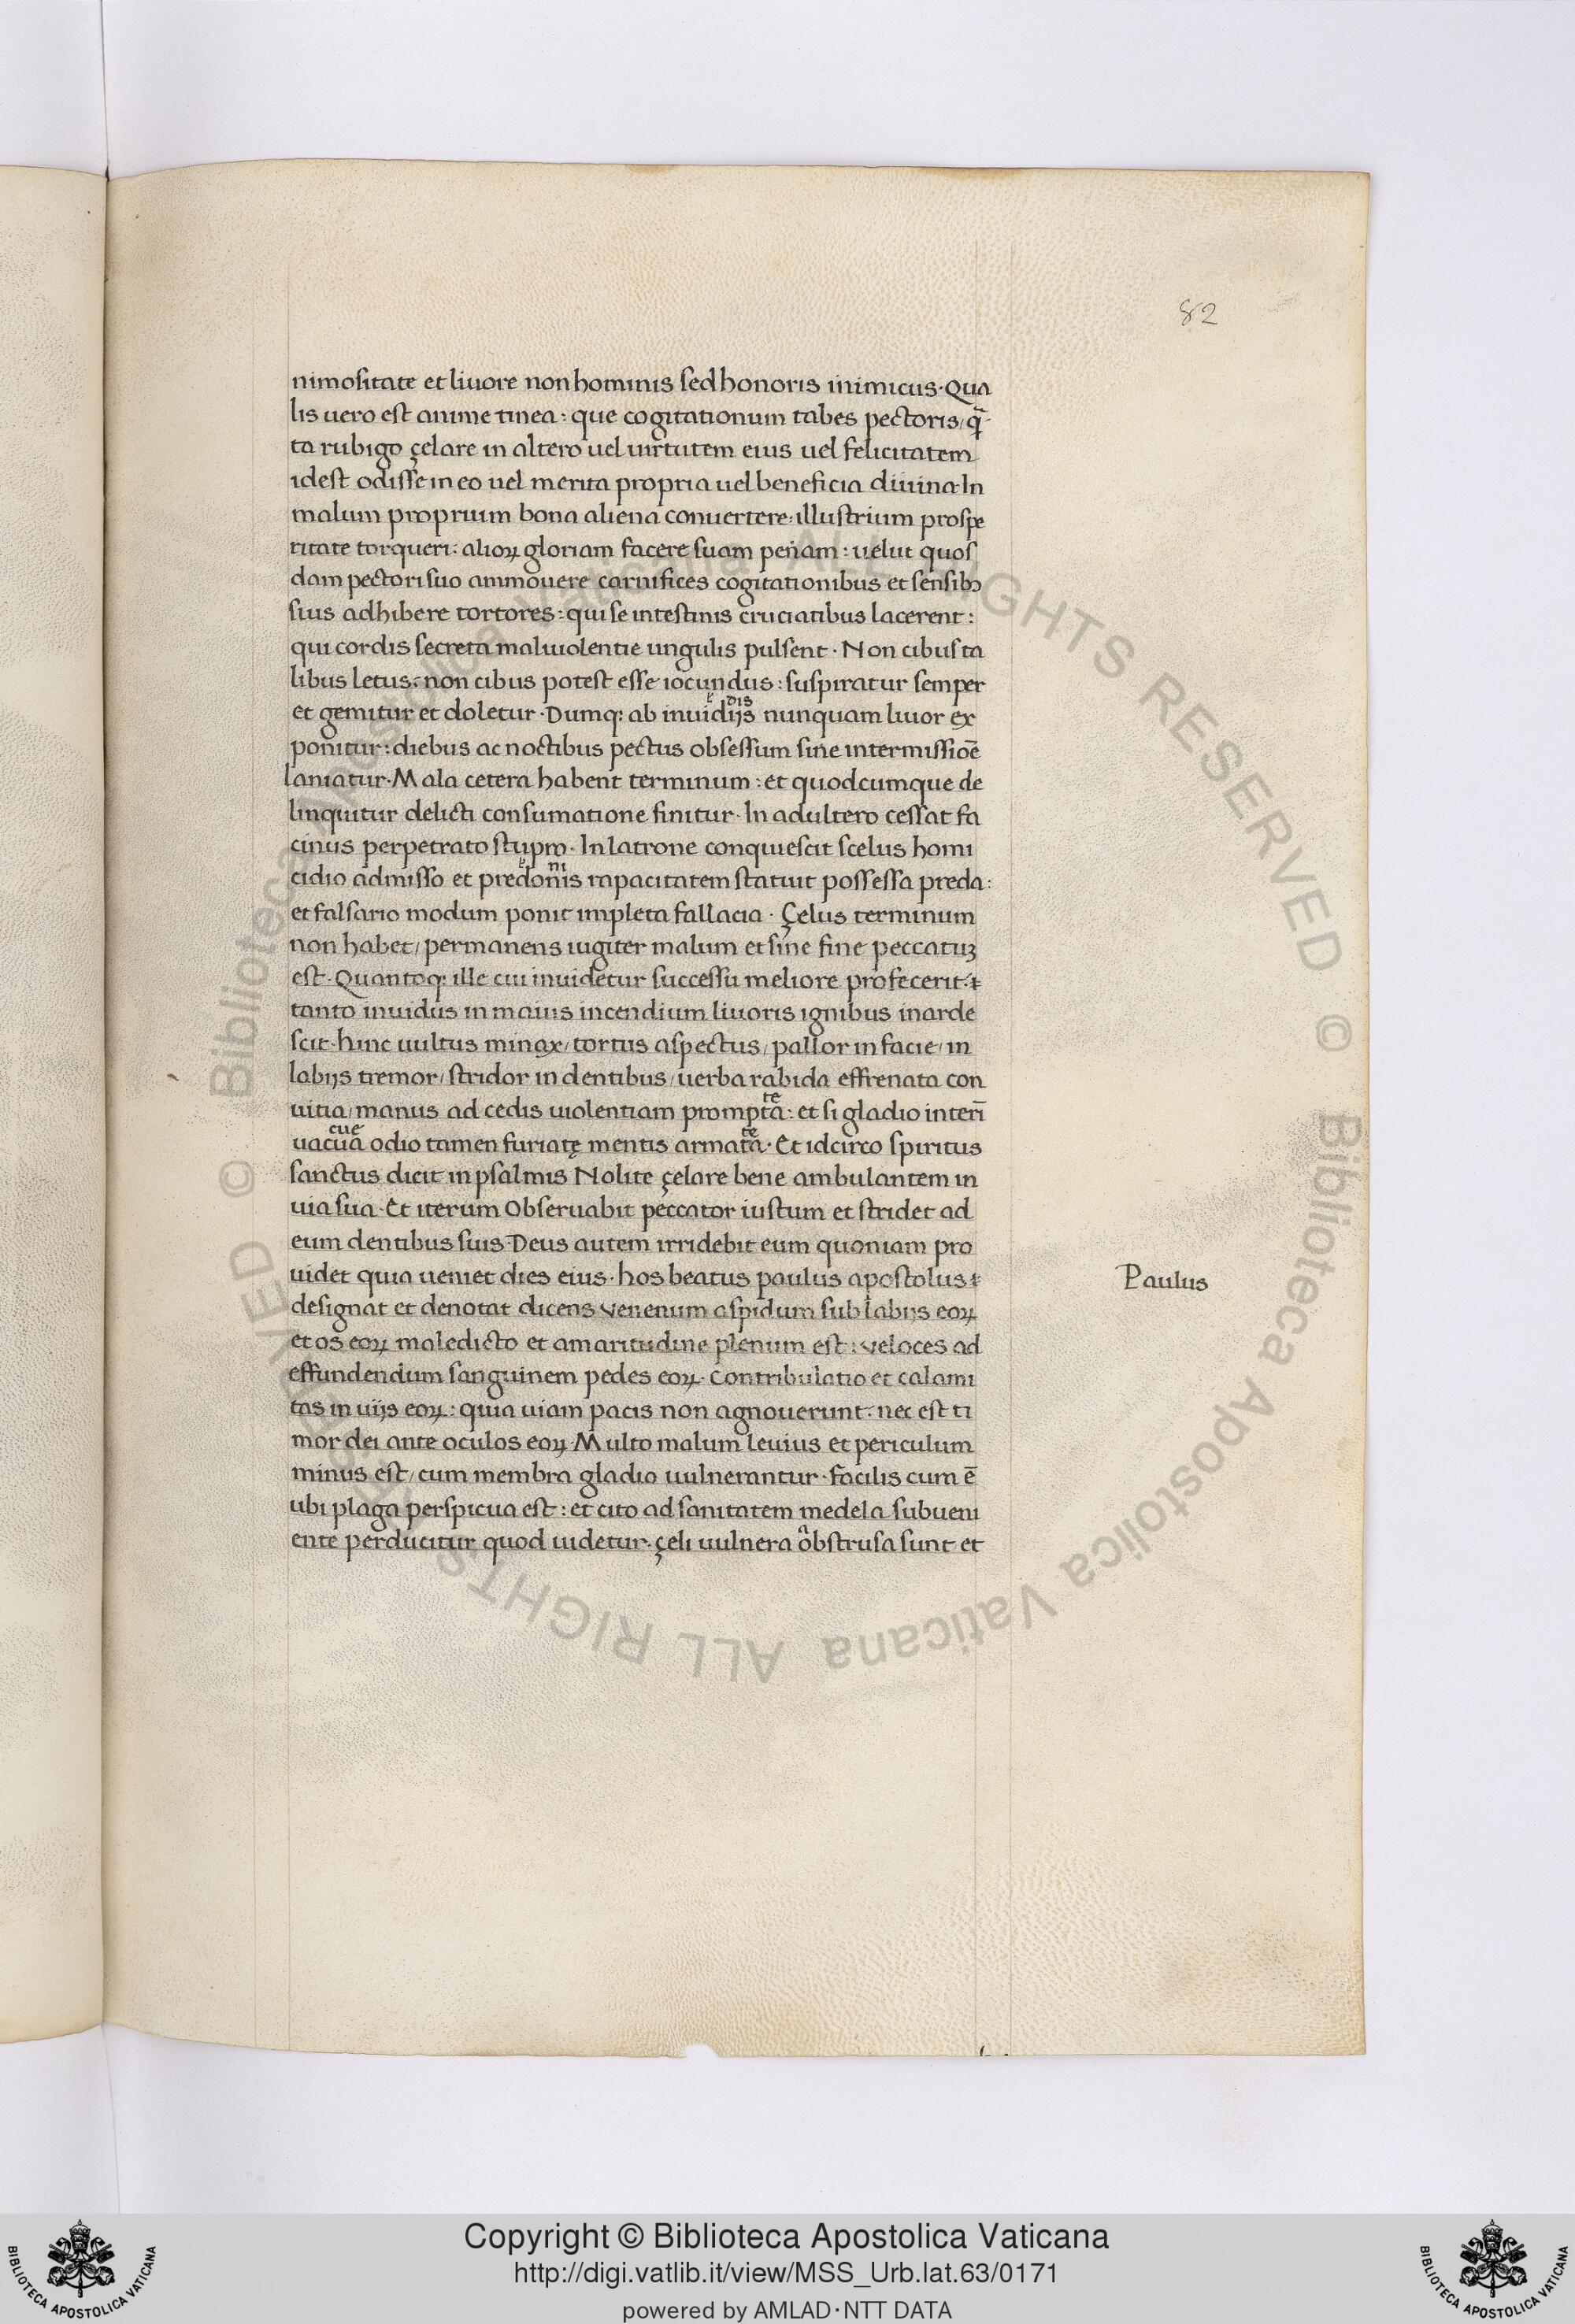 82
nimositate et liuore non hominis sed honoris inimicus· Qua
lis uero est anime tinea: que cogitationum tabes pectoris, q̄
ta rubigo çelare in altero uel uirtutem eius uel felicitatem
idest odisse in eo uel merita propria uel beneficia diuina· In
malum proprium bona aliena conuertere: illustrium prospe
ritate torqueri: alioꝝ gloriam facere suam penam: uelut quos
dam pectori suo ammouere carnifices cogitationibus et sensibꝫ
suis adhibere tortores: qui se intestinis cruciatibus lacerent:
qui cordis secreta maliuolentie ungulis pulsent· Non cibus ta
libus letus: non cibus potest esse iocundus: suspiratur semper
et gemitur et doletur· Dumqꝫ ab inuidijs nunquam liuor ex
dis
ponitur: diebus ac noctibus pectus obsessum sine intermissiōe
laniatur· Mala cetera habent terminum: et quodcumque de
linquitur delicti consumatione finitur· In adultero cessat fa
cinus perpetrato stupro· In latrone conquiescit scelus homi
cidio admisso et predonis rapacitatem statuit possessa preda:
ni
et falsario modum ponit impleta fallacia· Çelus terminum
non habet, permanens iugiter malum et sine fine peccatuꝫ
est· Quantoqꝫ ille cui inuidetur successu meliore profecerit:
tanto inuidus in maius incendium liuoris ignibus inarde
scit· hinc uultus minax, tortus aspectus, pallor in facie, in
labijs tremor, stridor in dentibus, uerba rabida effrenata con
uitia, manus ad cedis uiolentiam prompta: et si gladio interī
te
uacua odio tamen furiatę mentis armata· Et idcirco spiritus
cue te
sanctus dicit in psalmis Nolite çelare bene ambulantem in
uia sua· Et iterum Obseruabit peccator iustum et stridet ad
eum dentibus suis· Deus autem irridebit eum quoniam pro
uidet quia ueniet dies eius· hos beatus paulus apostolus
Paulus
designat et denotat dicens Venenum aspidum sub labijs eoꝝ
et os eoꝝ maledicto et amaritudine plenum est: veloces ad
effundendum sanguinem pedes eoꝝ· Contribulatio et calami
tas in uijs eoꝝ: quia uiam pacis non agnouerunt: nec est ti
mor dei ante oculos eoꝝ· Multo malum leuius et periculum
minus est, cum membra gladio uulnerantur· facilis cum ē
ubi plaga perspicua est: et cito ad sanitatem medela subueni
ente perducitur quod uidetur· çeli uulnera obstrusa sunt et
a
Copyright © Biblioteca Apostolica Vaticana
http://digi.vatlib.it/view/MSS_Urb.lat.63/0171
powered by AMLAD·NTT DATA
BIBLIOTECA APOSTOLICA VATICANA
BIBLIOTECA APOSTOLICA VATICANA
© Biblioteca Apostolica Vaticana ALL RIGHTS RESERVED © Biblioteca Apostolica Vaticana ALL RIGHTS RESERVED